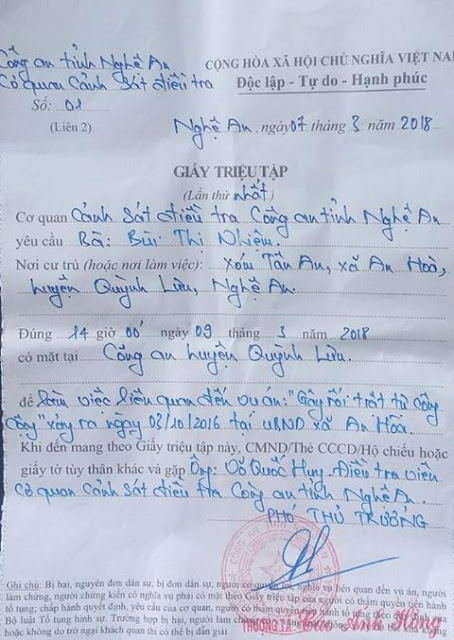 Công an tỉnh Nghệ An
Cơ quan Cảnh Sát điều tra
Số: 01
(Liên 2)
CỘNG HÒA XÃ HỘI CHỦ NGHĨA VIỆT NA
Độc lập - Tự do - Hạnh phúc
Nghệ An, ngày 07 tháng 3 năm 2018
GIẤY TRIỆU TẬP
(Lần thứ nhất)
Cơ quan Cảnh Sát điều tra Công an tỉnh Nghệ An
yêu cầu Bà: Bùi Thị Nhiệm.
Nơi cư trú (hoặc nơi làm việc): Xóm Tân An, xã An Hoà,
huyện Quỳnh Lưu, Nghệ An.
Đúng 14 giờ 00' ngày 09 tháng 3 năm 2018
có mặt tại Công an huyện Quỳnh Lưu.
để làm việc liên quan đến vụ án: "Gây rối trật tự công
cộng" xảy ra ngày 03/10/2016 tại UBND xã An Hoà.
Khi đến mang theo Giấy triệu tập này, CMND/Thẻ CCCD/Hộ chiếu hoặc
giấy tờ tùy thân khác và gặp Ông: Võ Quốc Huy, Điều tra viên
Cơ quan Cảnh Sát điều tra Công an tỉnh Nghệ An.
PHÓ THỦ TRƯỞNG
Ghi chú: Bị hại, nguyên đơn dân sự, bị đơn dân sự, người có quyền lợi, nghĩa vụ liên quan đến vụ án, người
làm chứng, người chứng kiến có nghĩa vụ phải có mặt theo Giấy triệu tập của người có thẩm quyền tiến hành
tố tụng; chấp hành quyết định, yêu cầu của cơ quan, người có thẩm quyền tiến hành tố tụng theo
Bộ luật Tố tụng hình sự. Trường hợp bị hại, người làm chứng
hoặc không do trở ngại khách quan thì có thể bị dẫn giải
THƯỢNG TÁ Cao Anh Hồng